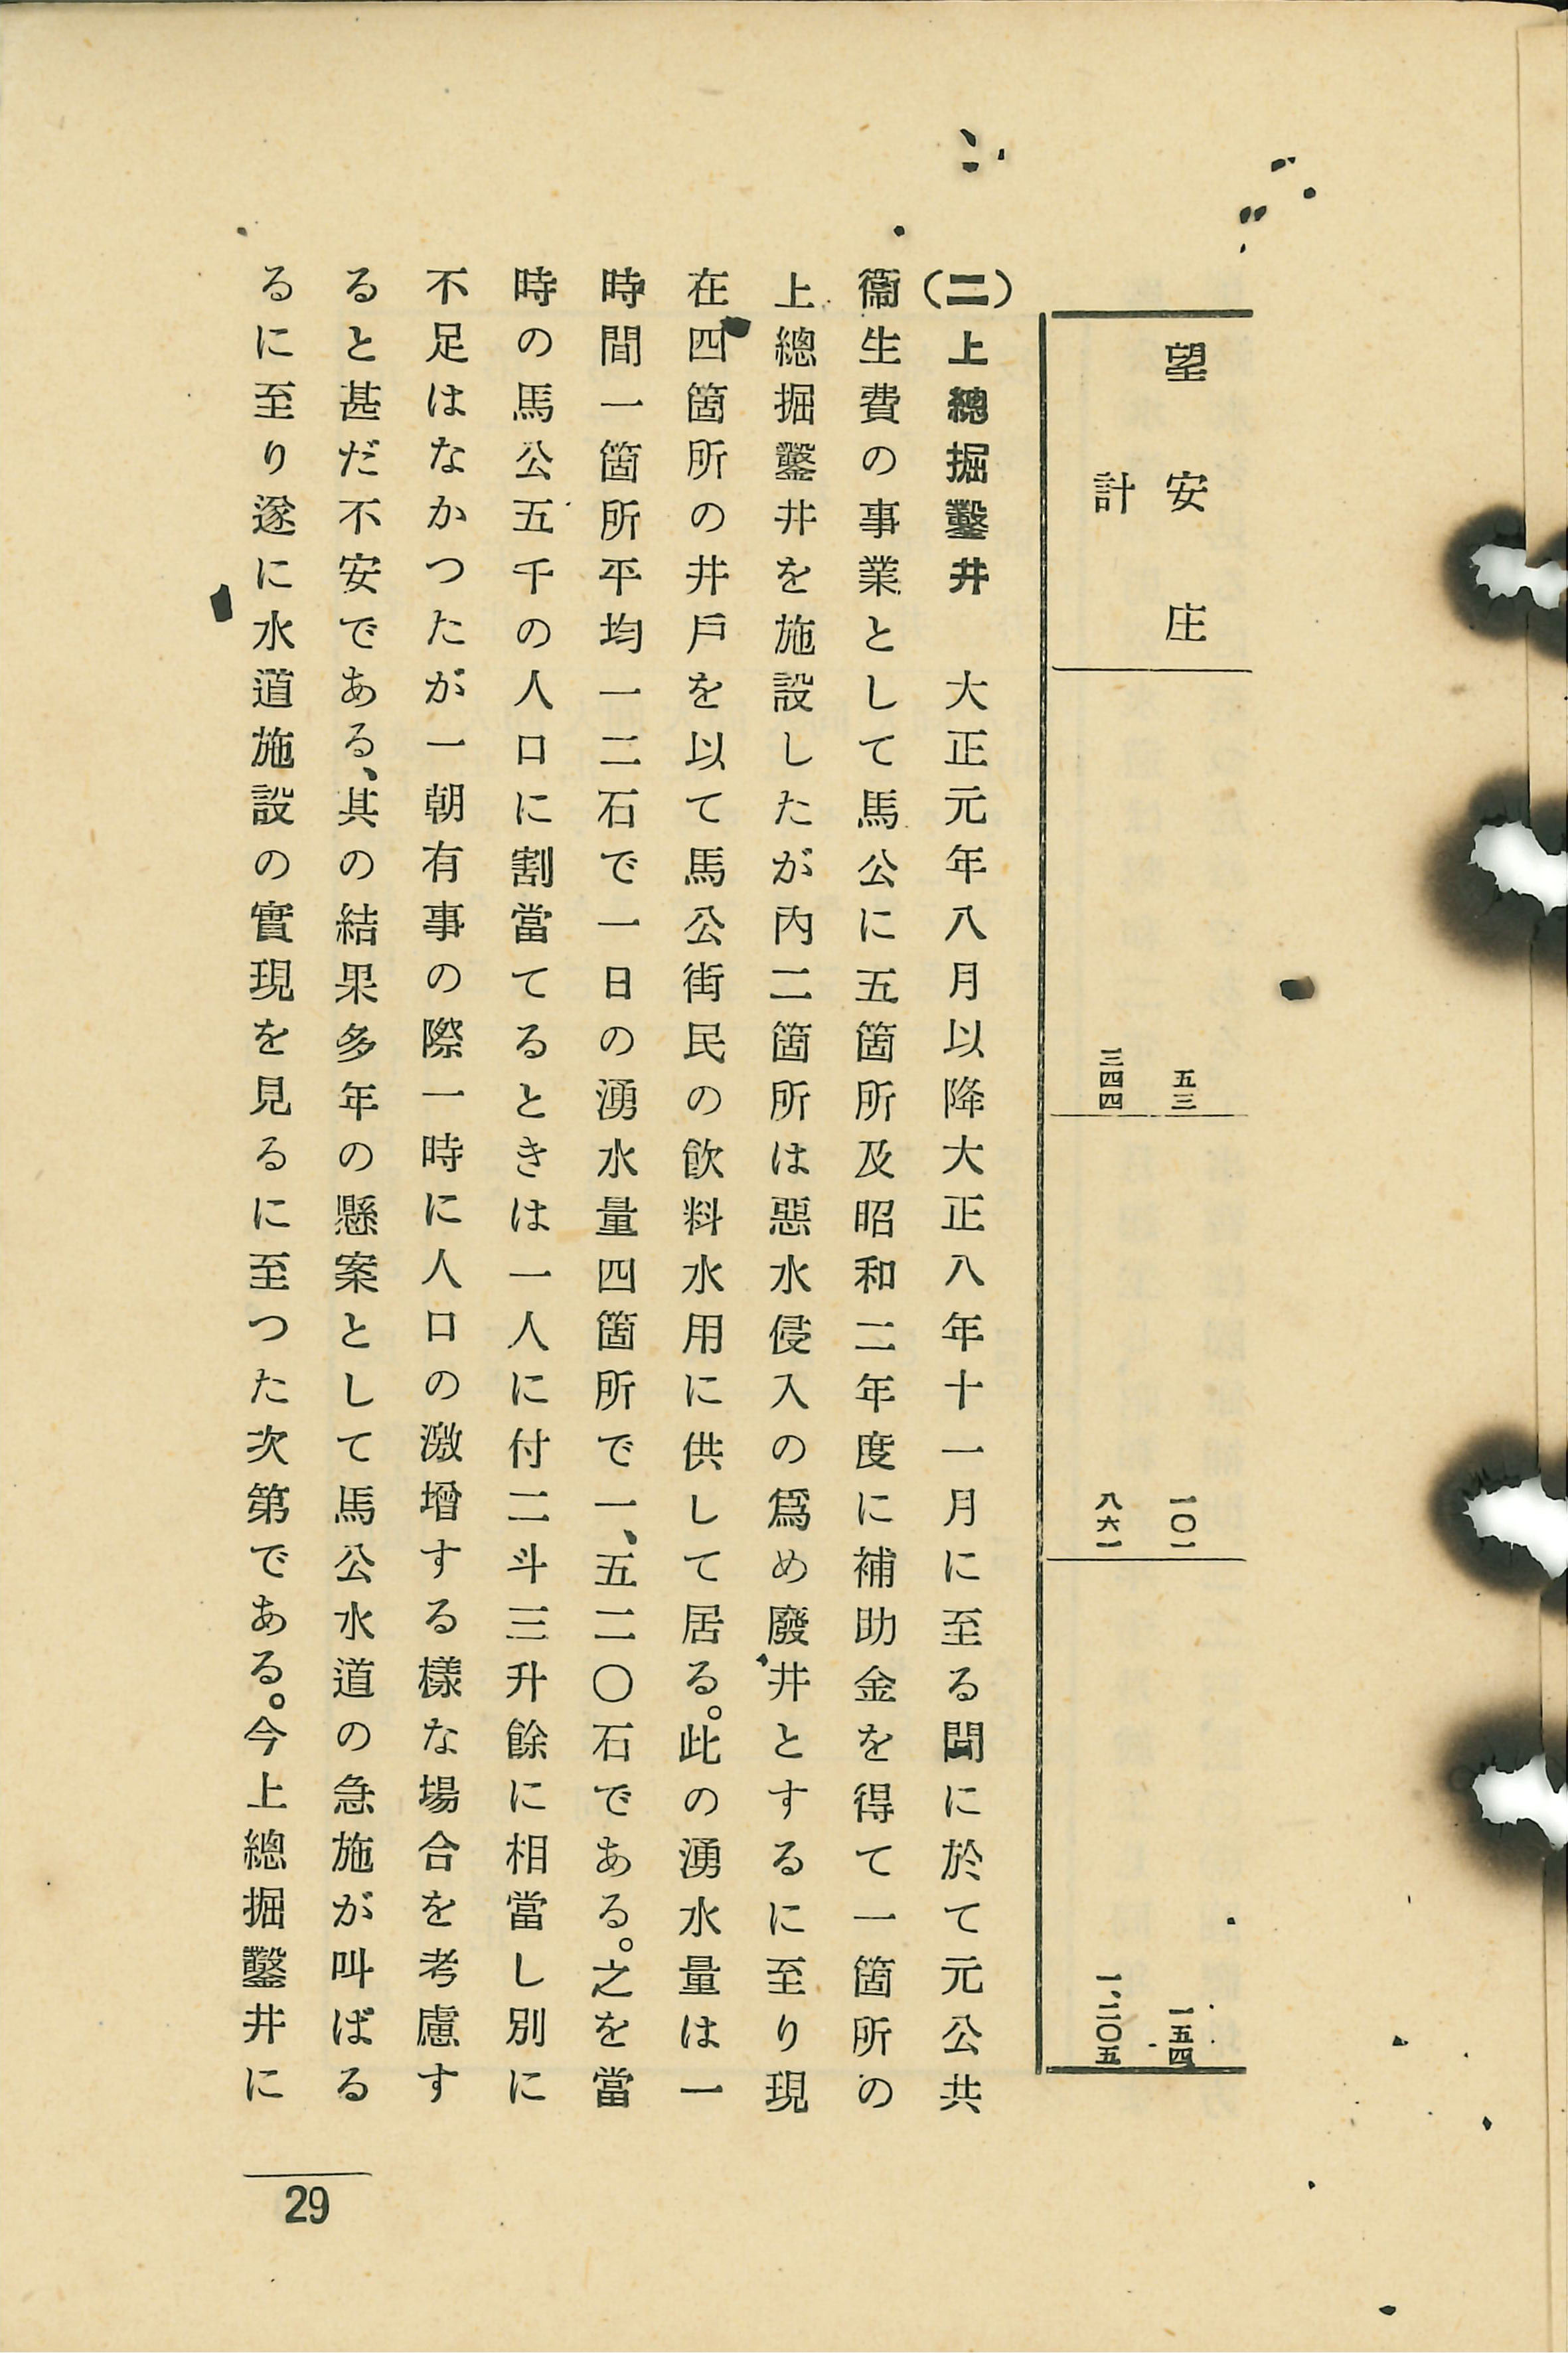 望安庄 五三 一〇一 一五四
計 三四四 八六一 一、二〇五
（二）上總掘鑿井　大正元年八月以降大正八年十一月に至る間に於て元公共
衞生費の事業として馬公に五箇所及昭和二年度に補助金を得て一箇所の
上總掘鑿井を施設したが內二箇所は惡水侵入の爲め廢井とするに至り現
在四箇所の井戶を以て馬公街民の飮料水用に供して居る。此の湧水量は一
時間一箇所平均一二石で一日の湧水量四箇所で一、五二〇石である。之を當
時の馬公五千の人口に割當てるときは一人に付二斗三升餘に相當し別に
不足はなかつたが一朝有事の際一時に人口の激增する樣な場合を考慮す
ると甚だ不安である、其の結果多年の懸案として馬公水道の急施が叫ばる
るに至り遂に水道施設の實現を見るに至つた次第である。今上總掘鑿井に
29